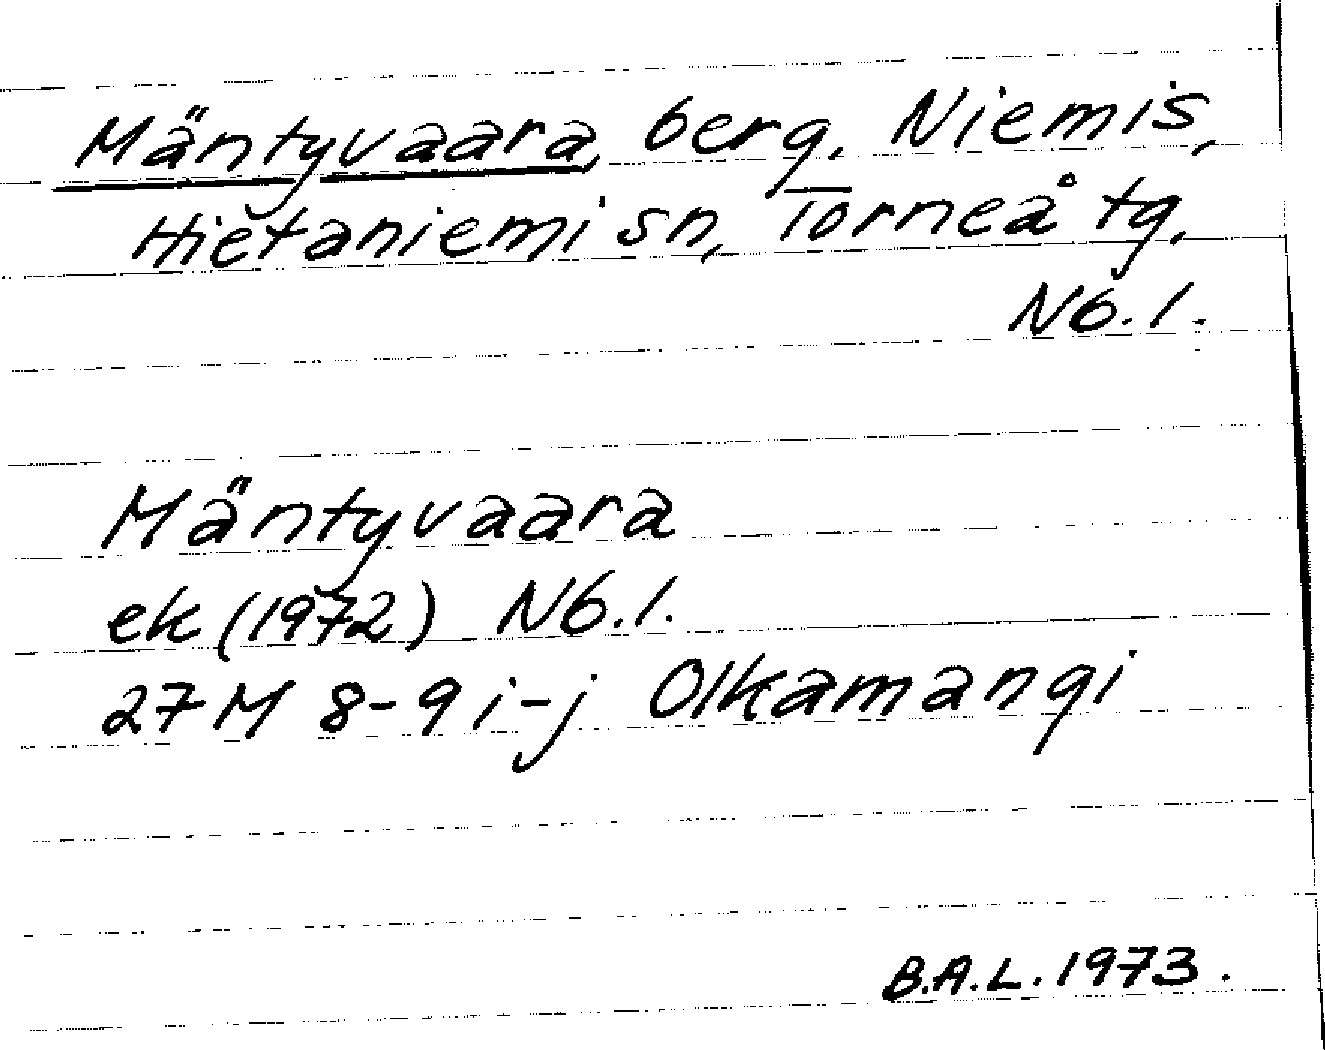 Mäntyvaara, berg, Niemis,
Hietaniemi sn, Torneå tg,
Nb. l.
Mäntyvaara
ek (1972) Nb. l.
27 M 8-9 i-j Olkamangi
B.A.L. 1973.